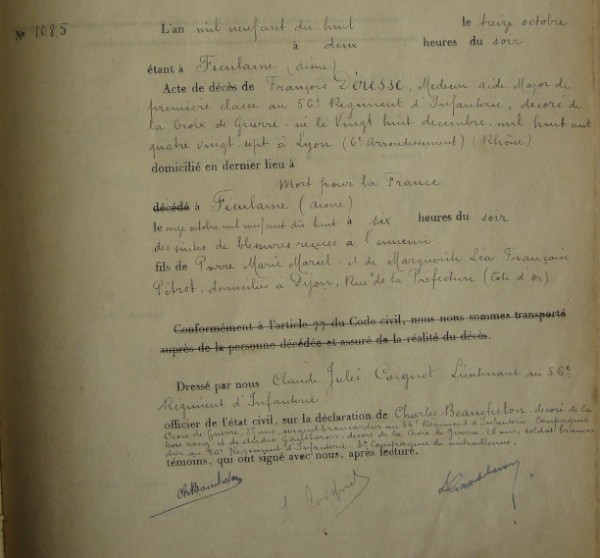 N° 1085
L'an mil neufcent dix huit le treize octobre
à deux heures du soir
étant à Ficulaine (aisne)
Acte de décès de François Déresse, Medecin aide-Major de
première classe au 56e Régiment d'Infanterie, décoré de
la Croix de Guerre - né le Vingt huit decembre mil huit cent
quatre vingt sept à Lyon (6e Arrondissement) (Rhône)
domicilié en dernier lieu à
Mort pour la France
décédé à Ficulaine (aisne)
le onze octobre mil neufcent dix huit à six heures du soir
des suites de blessures reçues à l'ennemi
fils de Pierre Marie Marcel et de Marguerite Léa Françoise
Pétrot, domiciliés à Dijon, Rue de la Préfecture (Côte d'or)
Conformément à l'article 77 du Code civil, nous nous sommes transporté
auprès de la personne décédée et assuré de la réalité du décès.
Dressé par nous Claude Jules Corgnet Lieutenant au 56e
Régiment d'Infanterie
officier de l'état civil, sur la déclaration de Charles Beaucheton, décoré de la
Croix de Guerre, ans, sergent brancardier au 56e Régiment d'Infanterie Compagnie
hors rang, et de André décoré de la Croix de Guerre, 20 ans, soldat brancar
dier au Régiment d'Infanterie, 3e Compagnie de mitrailleuses,
témoins, qui ont signé avec nous, après lecture.